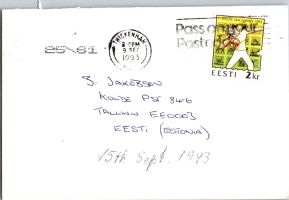 TWICKENHAM
6 PM
9 SEP
1993
Pass on your
Postc
EESTI 2 kr
J. JAKOBSON
KOIDE PST 84 6
TALLINN EE0003
EESTI (ESTONIA)
15th Sept. 1993